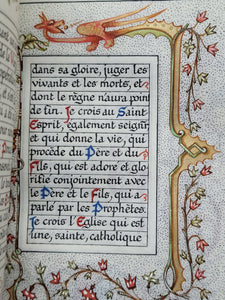 dans sa gloire, juger les
vivants et les morts, et
dont le règne n'aura point
de fin. Je crois au Saint
Esprit, également seignr
et qui donne la vie, qui
procède du Père et du
Fils, qui est adoré et glo
rifié conjointement avec
le Père et le Fils, qui a
parlé par les Prophètes.
Je crois l'Eglise qui est
une, sainte, catholique